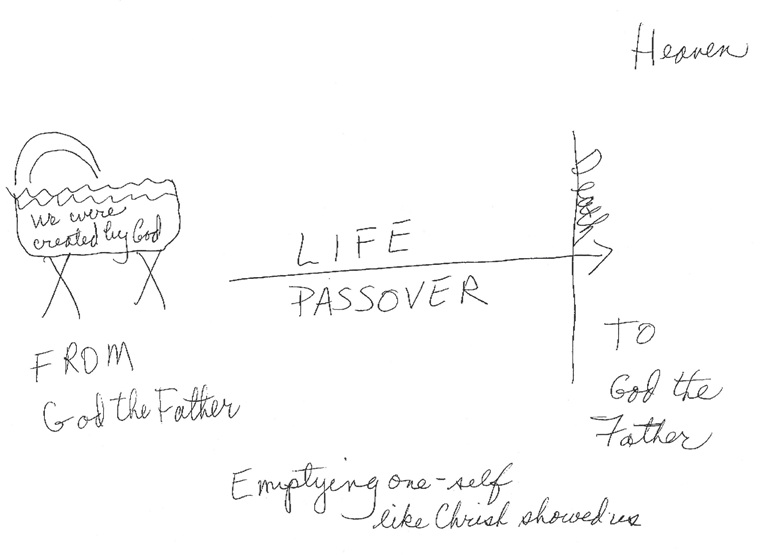 Heaven
Death
We were
created by God
LIFE
PASSOVER
FROM
God the Father
TO
God the
Father
Emptying one-self
like Christ showed us